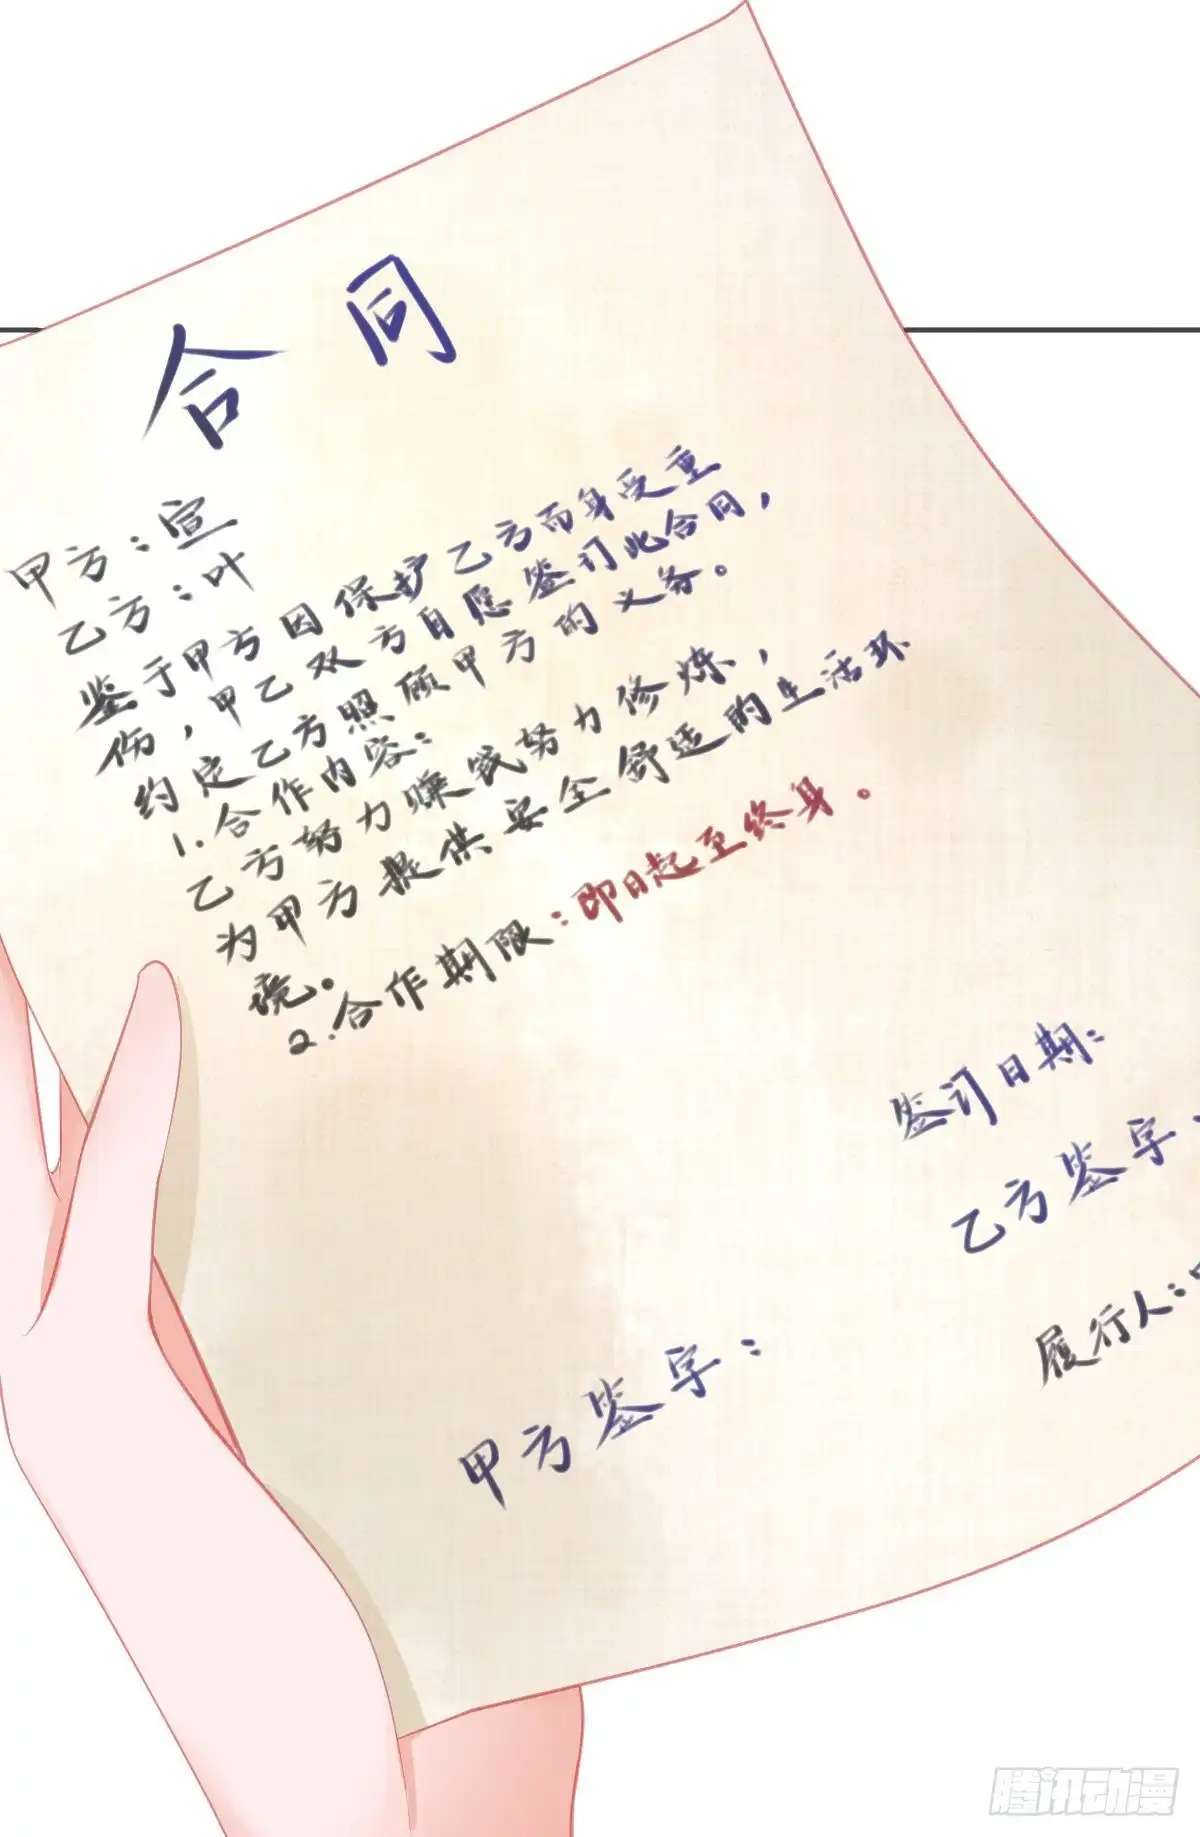 合同
甲方：宣
乙方：叶
鉴于甲方因保护乙方而身受重
伤，甲乙双方自愿签订此合同，
约定乙方照顾甲方的义务。
1.合作内容：
乙方努力赚钱努力修炼，
为甲方提供安全舒适的生活环
境。
2.合作期限：即日起至终身。
签订日期：
乙方签字：
履行人：
甲方签字：
腾讯动漫